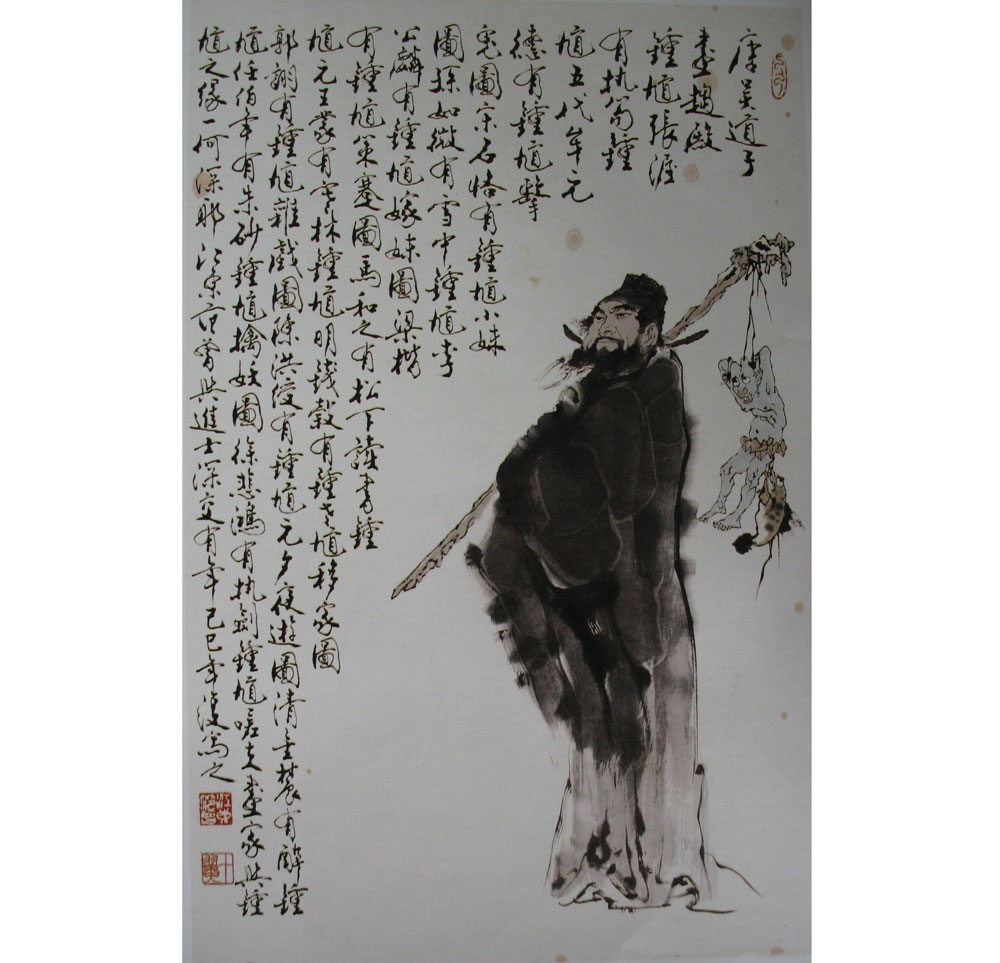 唐吳道子
畫趨殿
鍾馗張渥
有執笏鍾
馗五代牟元
德有鍾馗擊
鬼圖宋石恪有鍾馗小妹
圖孫知微有雪中鍾馗李
公麟有鍾馗嫁妹圖梁楷
有鍾馗策蹇圖馬和之有松下讀書鍾
馗元王蒙有寒林鍾馗明錢穀有鍾老馗移家圖
郭詡有鍾馗雜戲圖陳洪綬有鍾馗元夕夜遊圖清金農有醉鍾
馗任伯年有朱砂鍾馗擒妖圖徐悲鴻有執劍鍾馗嗟夫畫家與鍾
馗之緣一何深耶江東范曾與進士深交有年己巳年漫寫之
江東范曾
十翼